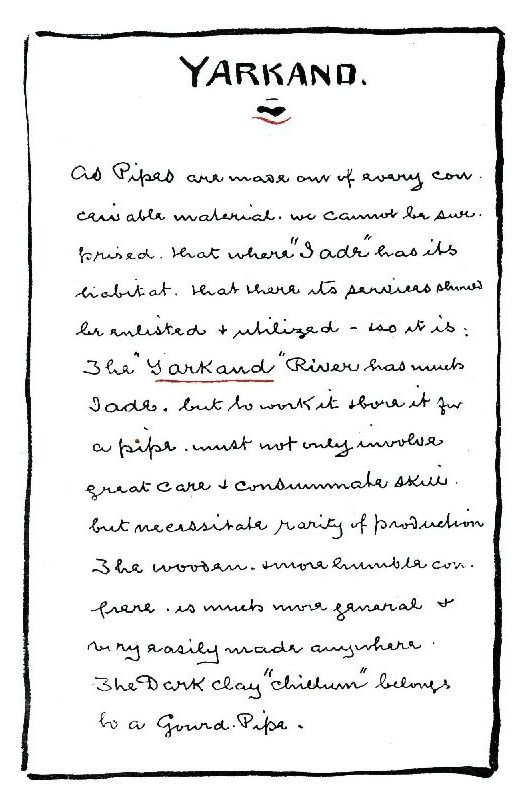 YARKAND.
As Pipes are made out of every con-
ceivable material. we cannot be sur-
prised. that where "Jade" has its
habitat. that there its services should
be enlisted & utilized - so it is:
The "Yarkand" River has much
Jade. but to work it & bore it for
a pipe. must not only involve
great care & consummate skill.
but necessitate rarity of production
The wooden. & more humble con-
frere. is much more general &
very easily made anywhere.
The Dark clay "chillum" belongs
to a Gourd. Pipe.